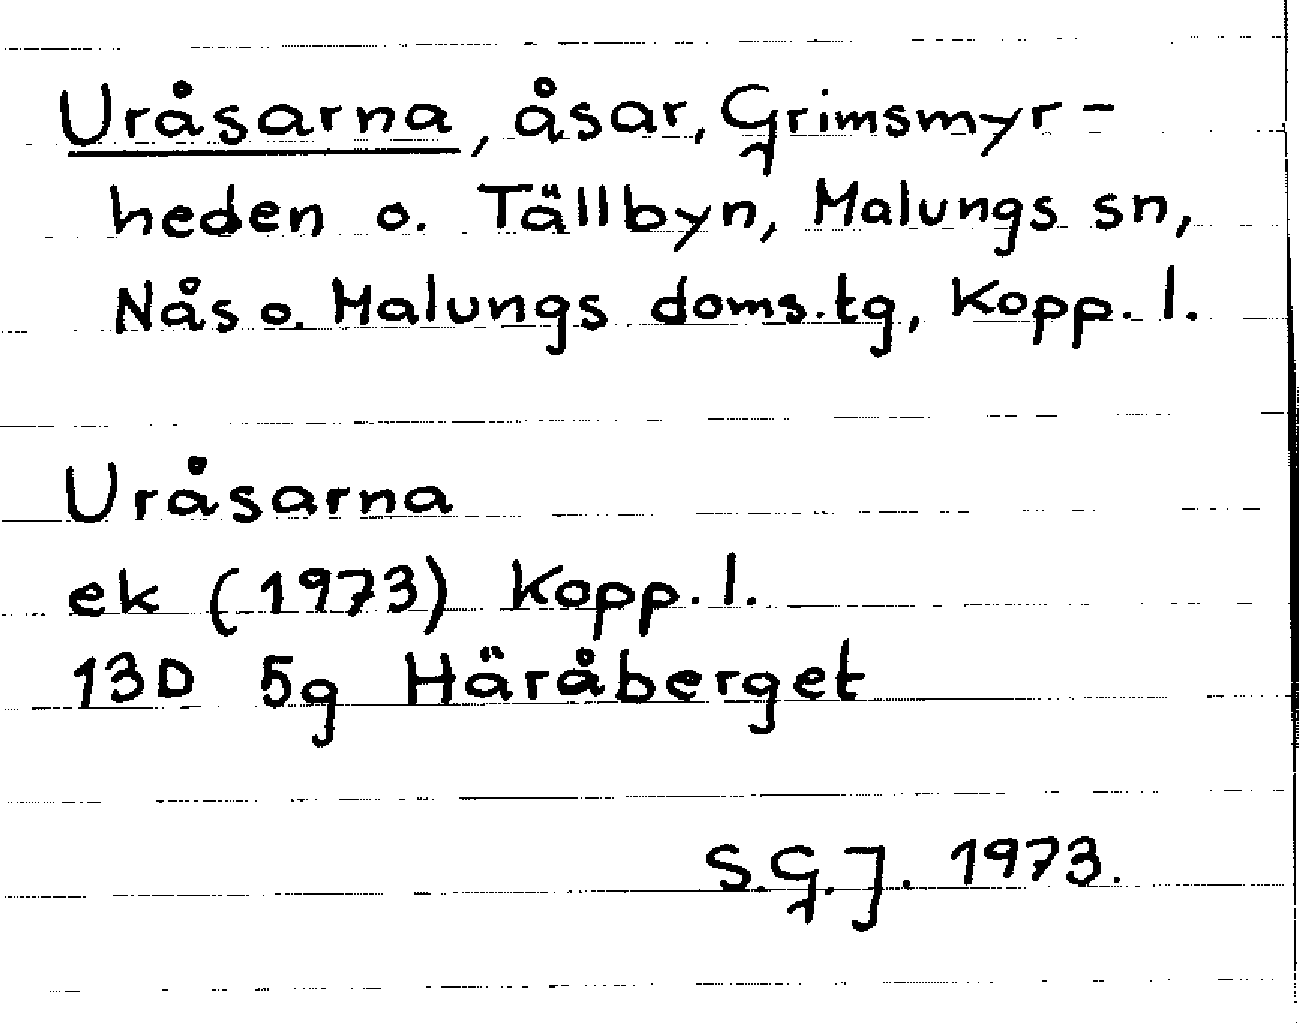 Uråsarna, åsar, Grimsmyr-
heden o. Tällbyn, Malungs sn,
Nås o. Malungs doms.tg, Kopp. l.
Uråsarna
ek (1973) Kopp. l.
13D 5g Häråberget
S.G.J. 1973.